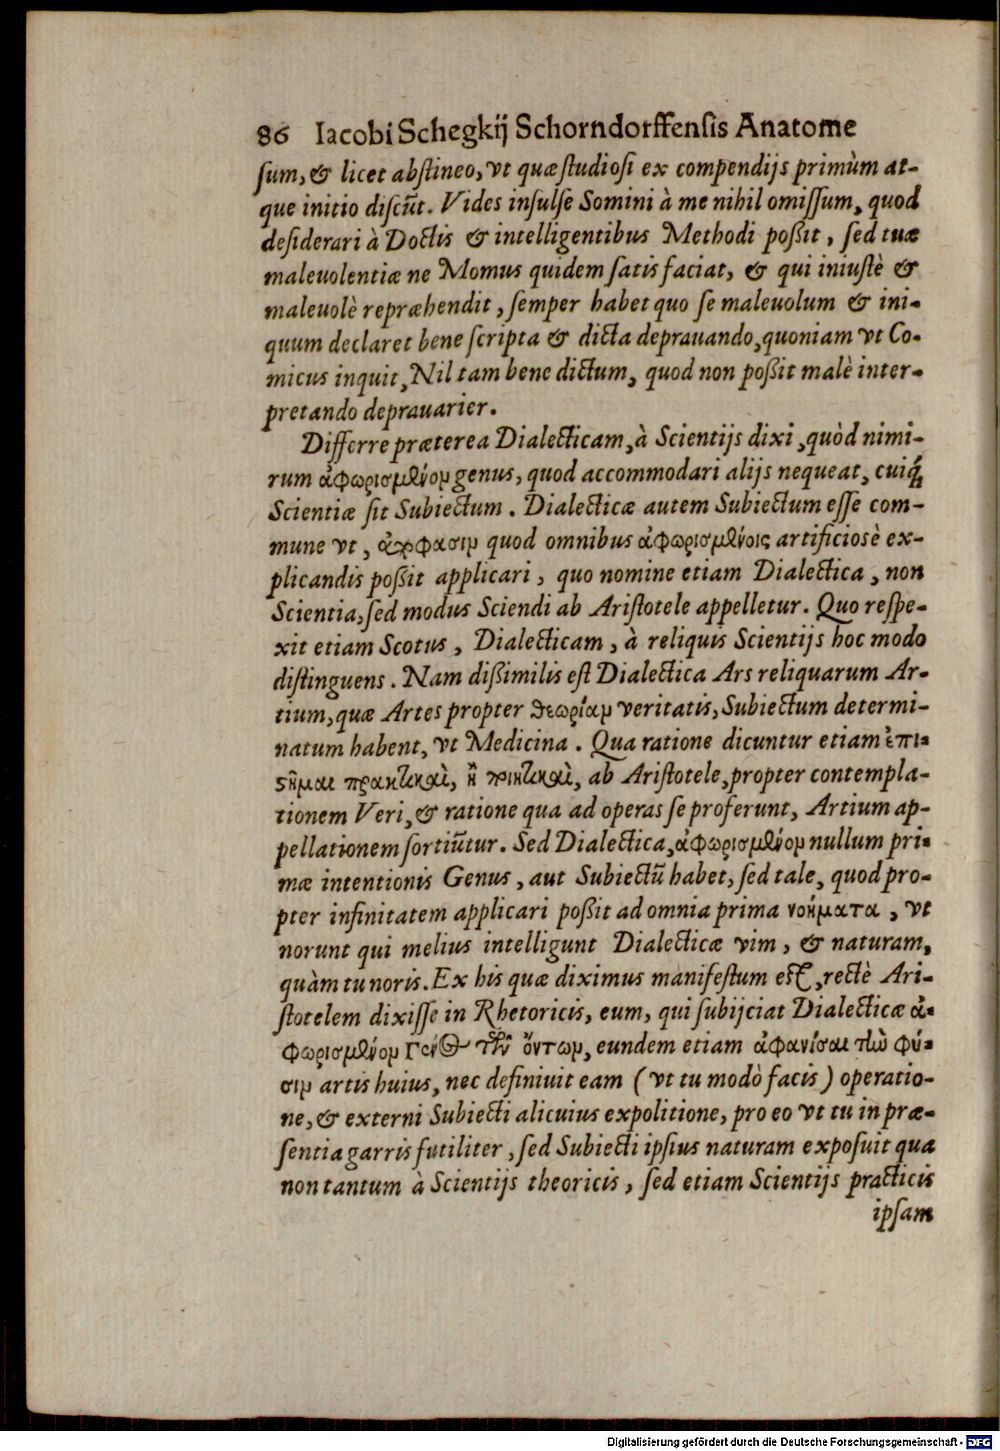 86 Iacobi Schegkij Schorndorffensis Anatome
sum, & licet abstineo, vt quæ studiosi ex compendijs primùm at-
que initio discūt. Vides insulse Somini à me nihil omissum, quod
desiderari à Doctis & intelligentibus Methodi poßit, sed tuæ
maleuolentiæ ne Momus quidem satis faciat, & qui iniustè &
maleuolè repræhendit, semper habet quo se maleuolum & ini-
quum declaret bene scripta & dicta deprauando, quoniam vt Co-
micus inquit, Nil tam bene dictum, quod non poßit malè inter-
pretando deprauarier.
Differre præterea Dialecticam, à Scientijs dixi, quòd nimi-
rum ἀφωρισμένον genus, quod accommodari alijs nequeat, cuiq́;
Scientiæ sit Subiectum. Dialecticæ autem Subiectum esse com-
mune vt, quod omnibus ἀφωρισμένοις artificiosè ex-
plicandis poßit applicari, quo nomine etiam Dialectica, non
Scientia, sed modus Sciendi ab Aristotele appelletur. Quo respe-
xit etiam Scotus, Dialecticam, à reliquis Scientijs hoc modo
distinguens. Nam dißimilis est Dialectica Ars reliquarum Ar-
tium, quæ Artes propter θεωρίαν veritatis, Subiectum determi-
natum habent, vt Medicina. Qua ratione dicuntur etiam ἐπι-
ςῆμαι πρακτικαὶ, ἢ ποιητικαὶ, ab Aristotele, propter contempla-
tionem Veri, & ratione qua ad operas se proferunt, Artium ap-
pellationem sortiūtur. Sed Dialectica, ἀφωρισμένον nullum pri-
mæ intentionis Genus, aut Subiectū habet, sed tale, quod pro-
pter infinitatem applicari poßit ad omnia prima νοήματα, vt
norunt qui melius intelligunt Dialecticæ vim, & naturam,
quàm tu noris. Ex his quæ diximus manifestum est, rectè Ari-
stotelem dixisse in Rhetoricis, eum, qui subijciat Dialecticæ ἀ-
φωρισμένον Γένος τῶν ὄντων, eundem etiam ἀφανίσαι τὴν φύ-
σιν artis huius, nec definiuit eam (vt tu modò facis) operatio-
ne, & externi Subiecti alicuius expolitione, pro eo vt tu in præ-
sentia garris futiliter, sed Subiecti ipsius naturam exposuit qua
non tantum à Scientijs theoricis, sed etiam Scientijs practicis
ipsam
Digitalisierung gefördert durch die Deutsche Forschungsgemeinschaft - DFG